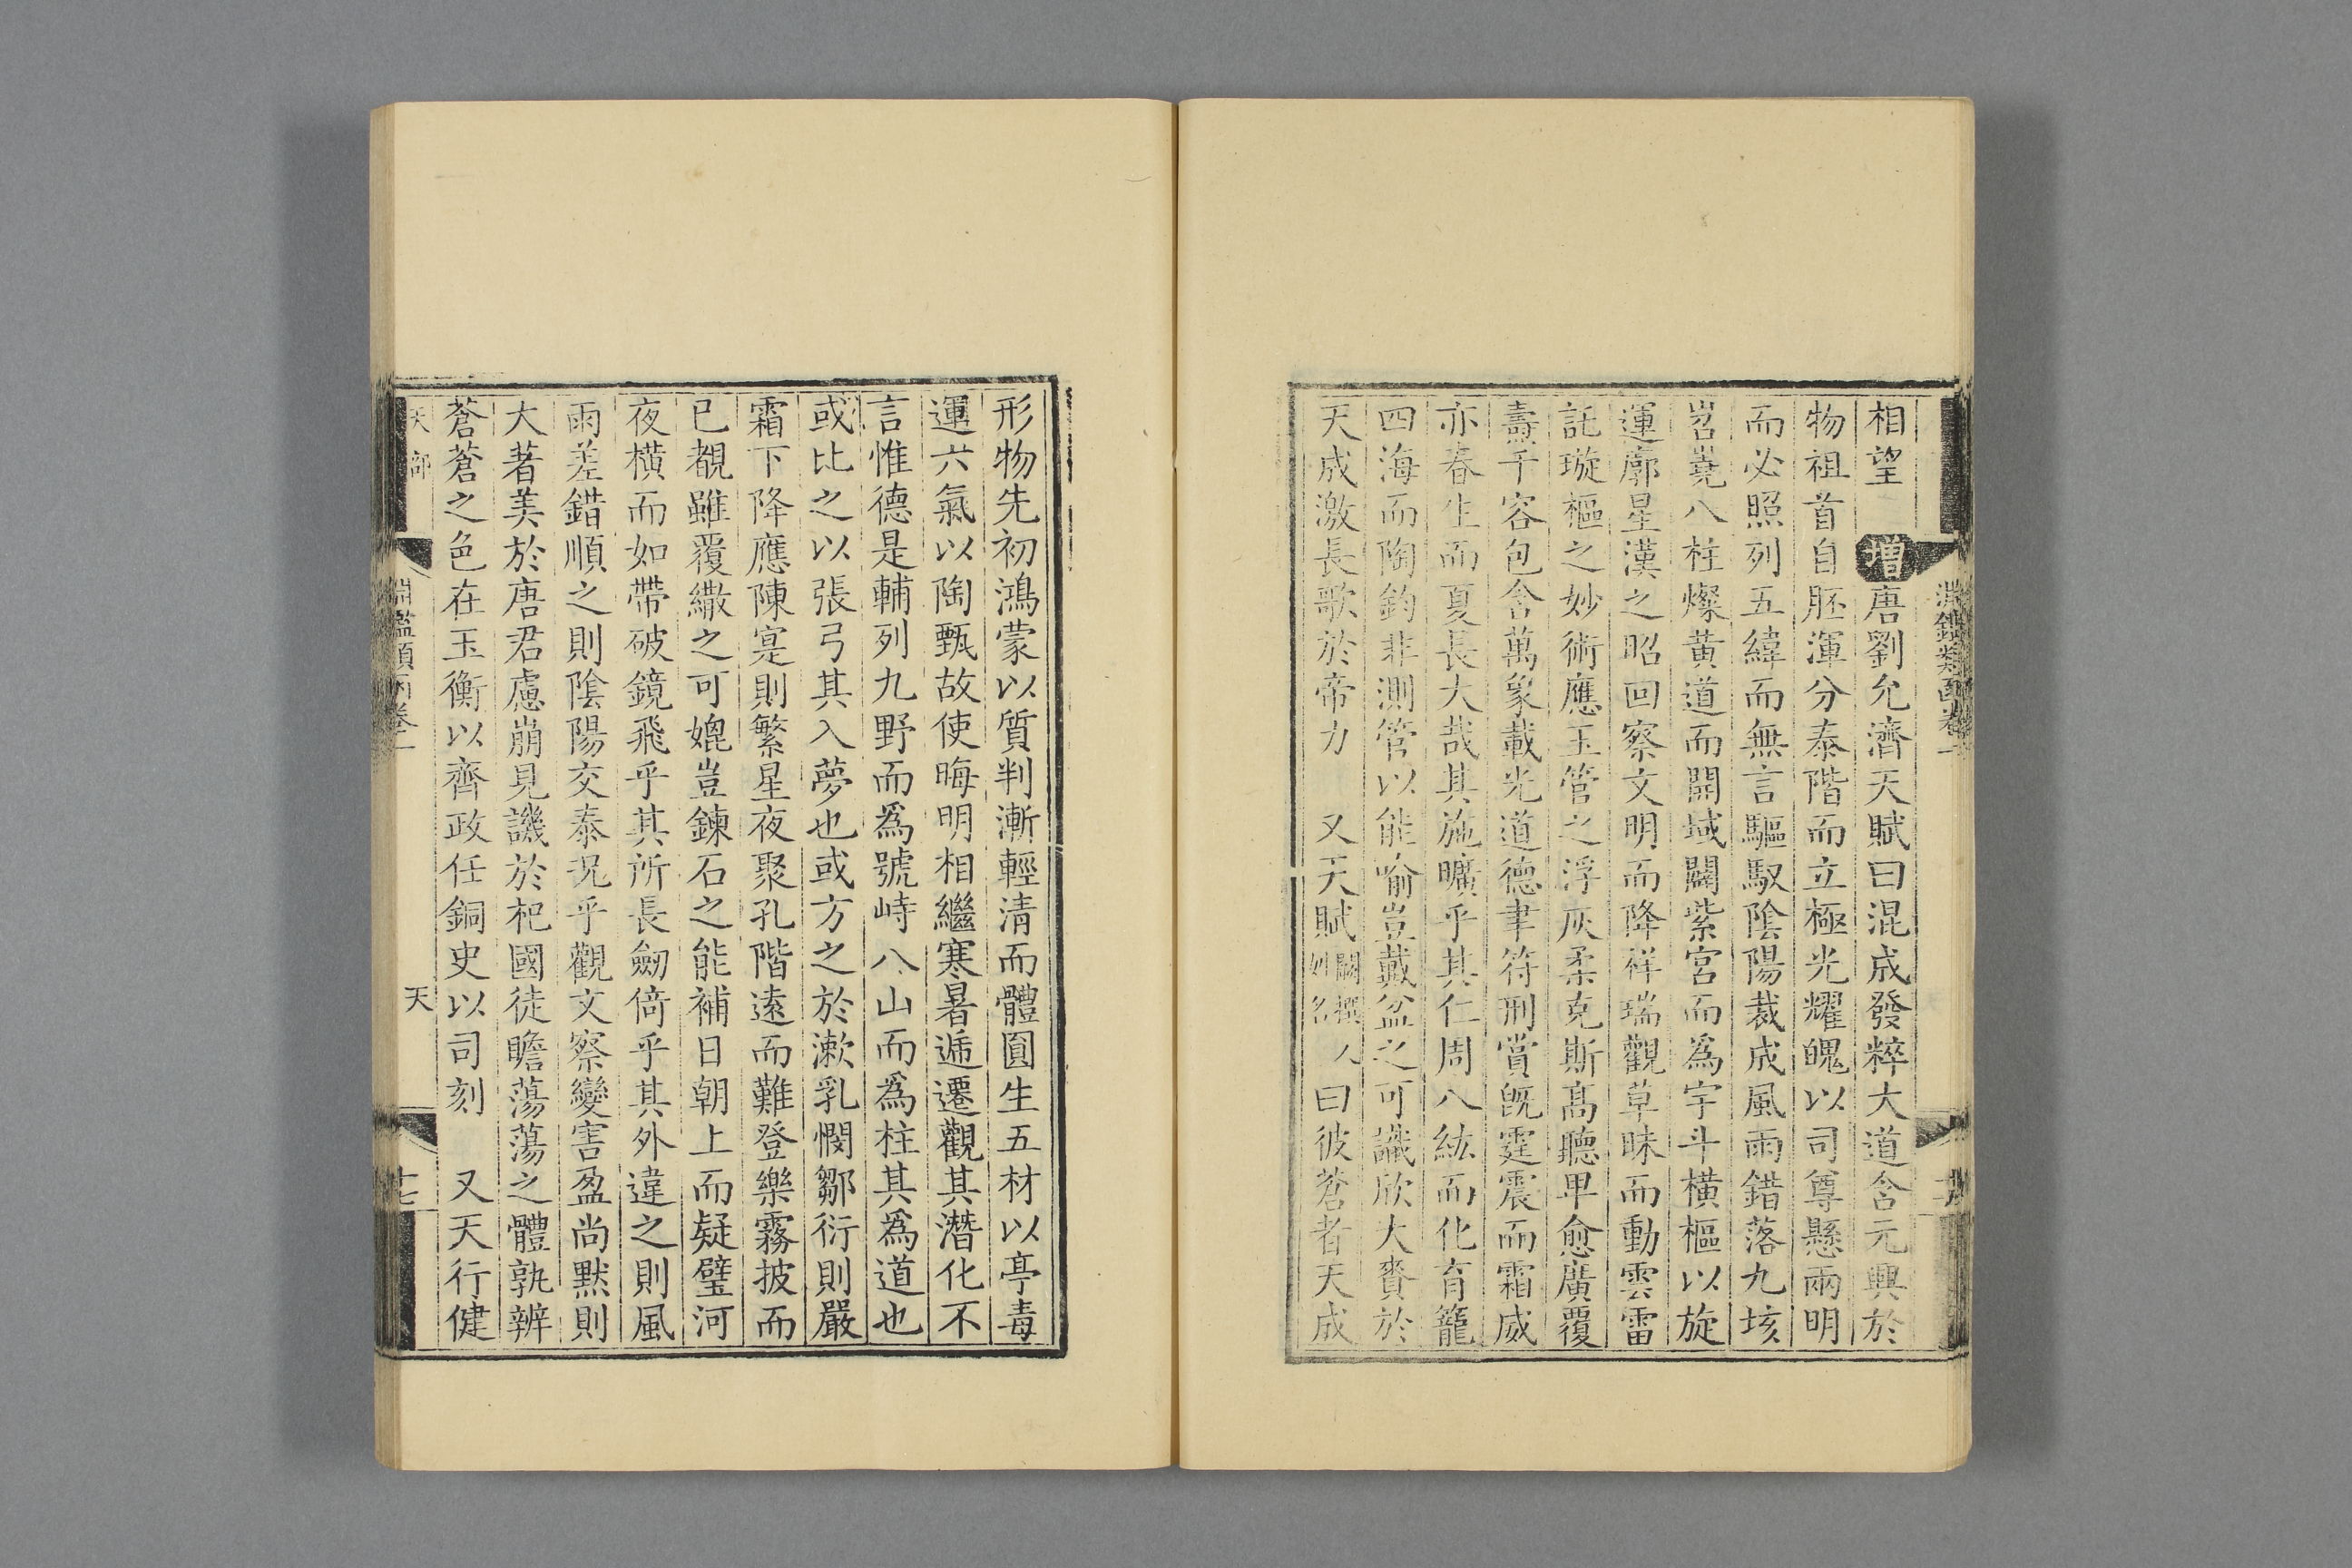 相望　增唐劉允濟天賦曰混成發粹大道含元興於
物祖首自胚渾分泰階而立極光耀魄以司尊懸兩明
而必照列五緯而無言驅馭陰陽裁成風雨錯落九垓
岧嶤八柱燦黃道而開域闢紫宮而為宇斗橫樞以旋
運廓星漢之昭回察文明而降祥瑞觀草昧而動雲雷
託璇樞之妙術應玉管之浮灰柔克斯高聽卑愈廣覆
燾千容包含萬象載光道德聿符刑賞旣霆震而霜威
亦春生而夏長大哉其施曠乎其仁周八紘而化育籠
四海而陶鈞非測管以能喻豈戴盆之可議欣大賚於
天成激長歌於帝力　又天賦闕撰人姓名曰彼蒼者天成
形物先初鴻蒙以質判漸輕清而體圓生五材以亭毒
運六氣以陶甄故使晦明相繼寒暑遞遷觀其潛化不
言惟德是輔列九野而為號峙八山而為柱其為道也
或比之以張弓其入夢也或方之於漱乳憫鄒衍則嚴
霜下降應陳寔則繁星夜聚孔階遠而難登樂霧披而
已覩雖覆繖之可媲豈鍊石之能補日朝上而疑璧河
夜橫而如帶破鏡飛乎其所長劒倚乎其外違之則風
雨差錯順之則陰陽交泰況乎觀文察變害盈尚默則
大著美於唐君慮崩見譏於杞國徒瞻蕩蕩之體孰辨
蒼蒼之色在玉衡以齊政任銅史以司刻　又天行健
天部
淵鑑類函卷一
天
十七